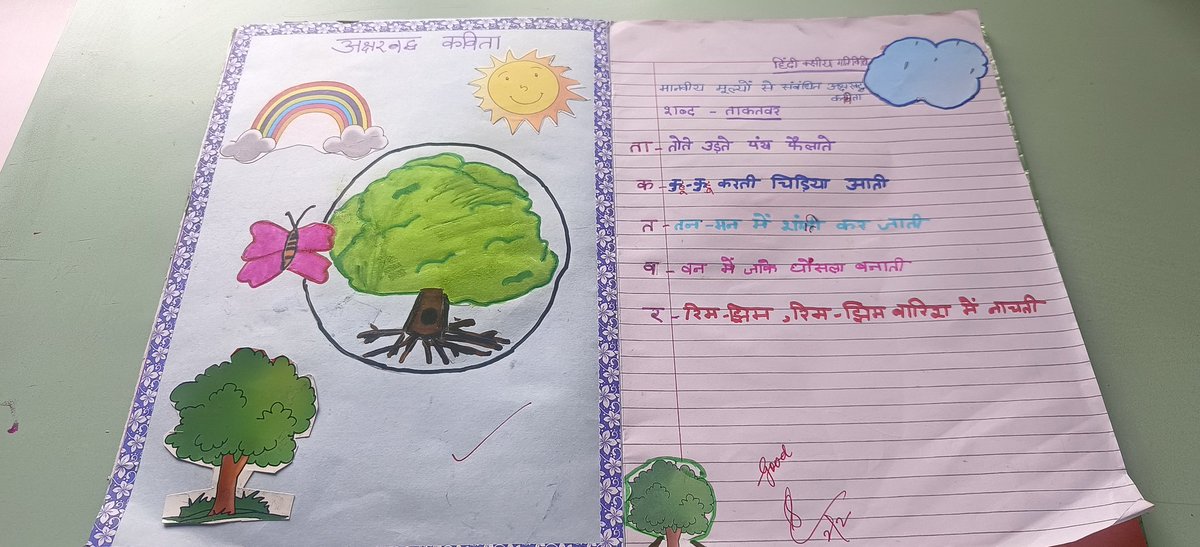 अक्षरबद्ध कविता
हिंदी
मानवीय मूल्यों से संबंधित
कविता
शब्द - ताकतवर
ता - तोते उड़ते पंख फैलाते
क - कुहू-कुहू करती चिड़िया आती
त - तन-मन में शांति कर जाती
व - वन में जाके घोंसला बनाती
र - रिम-झिम, रिम-झिम बारिश में नाचती
Good